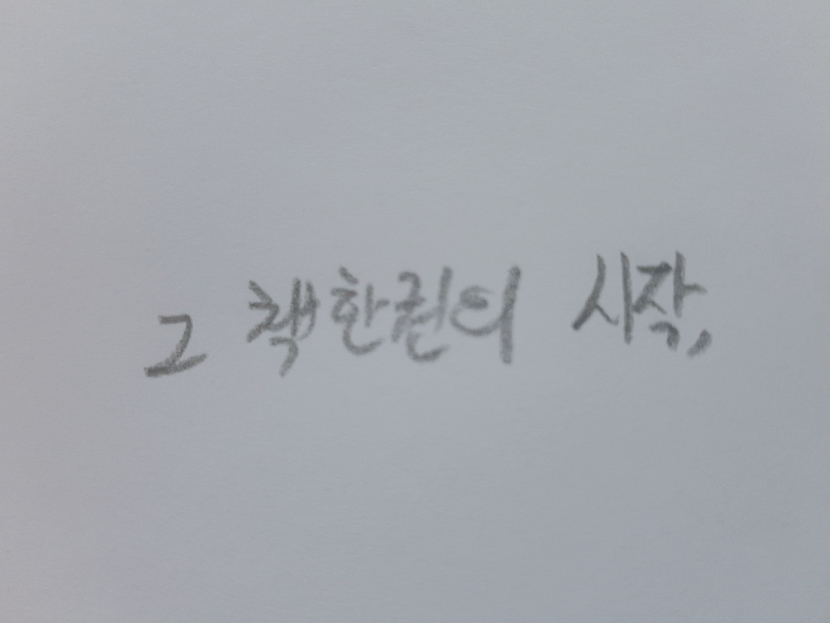 그 책한권의 시작,